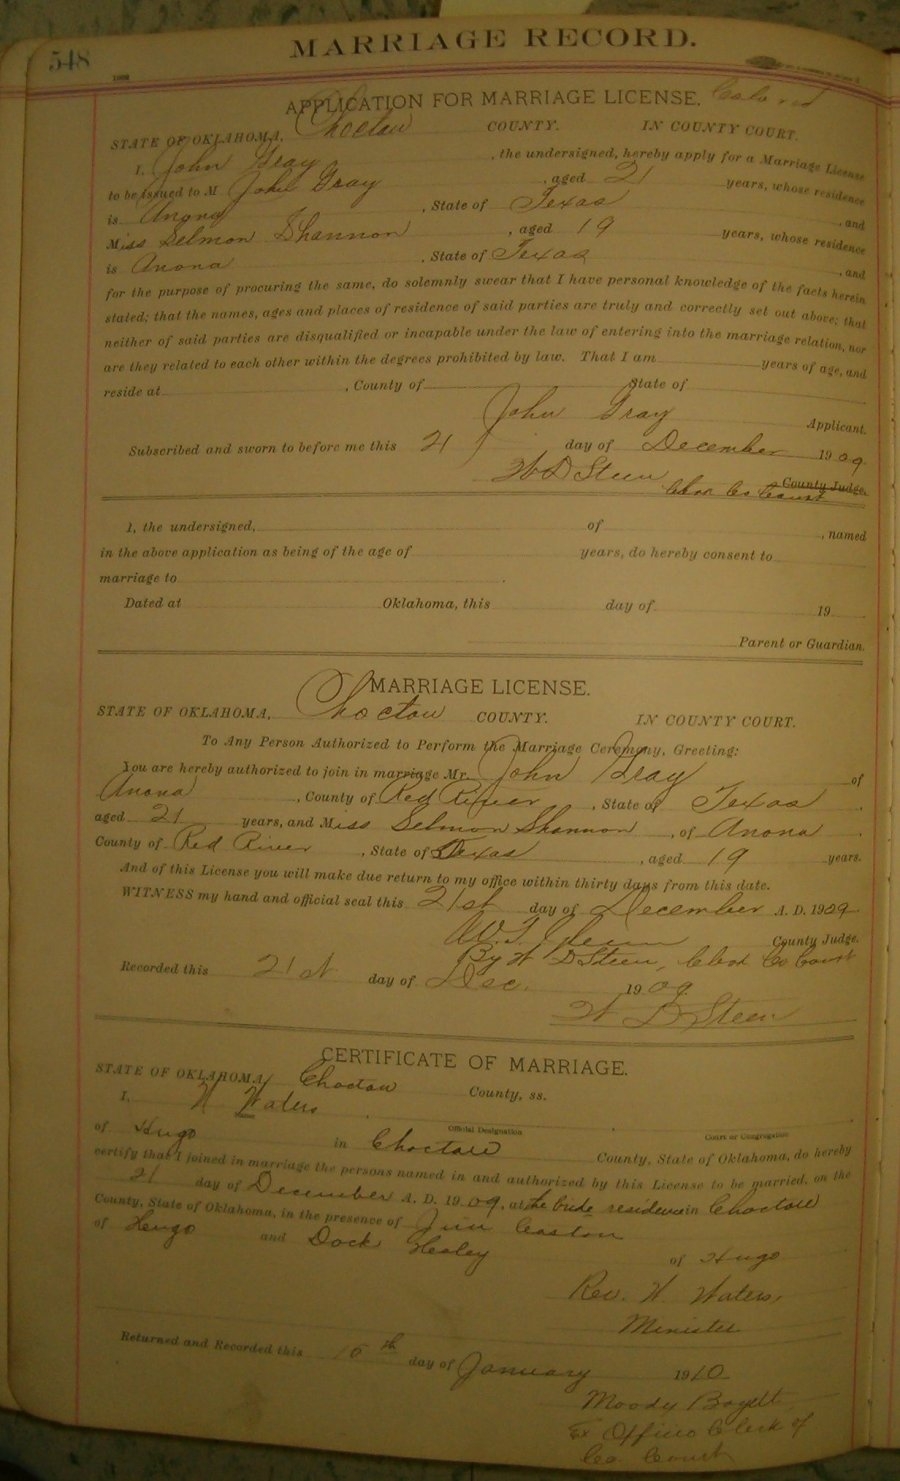 548
MARRIAGE RECORD.
APPLICATION FOR MARRIAGE LICENSE. Colored
STATE OF OKLAHOMA, Choctaw COUNTY. IN COUNTY COURT.
I, John Gray, the undersigned, hereby apply for a Marriage License
to be issued to M John Gray, aged 21 years, whose residence
is Anona, State of Texas, and
Miss Selmon Shannon, aged 19 years, whose residence
is Anona, State of Texas, and
for the purpose of procuring the same, do solemnly swear that I have personal knowledge of the facts herein
stated; that the names, ages and places of residence of said parties are truly and correctly set out above; that
neither of said parties are disqualified or incapable under the law of entering into the marriage relation, nor
are they related to each other within the degrees prohibited by law. That I am years of age, and
reside at , County of State of
John Gray Applicant.
Subscribed and sworn to before me this 21 day of December 1909
W D Steen County Judge.
Clerk Co Court
I, the undersigned, of , named
in the above application as being of the age of years, do hereby consent to
marriage to .
Dated at Oklahoma, this day of 19
Parent or Guardian.
MARRIAGE LICENSE.
STATE OF OKLAHOMA, Choctaw COUNTY. IN COUNTY COURT.
To Any Person Authorized to Perform the Marriage Ceremony, Greeting:
You are hereby authorized to join in marriage Mr. John Gray of
Anona, County of Red River, State of Texas.
aged 21 years, and Miss Selmon Shannon, of Anona.
County of Red River, State of Texas, aged 19 years.
And of this License you will make due return to my office within thirty days from this date.
WITNESS my hand and official seal this 21st day of December A. D. 1909
W. T. Glenn County Judge.
By W D Steen, Clerk Co Court
Recorded this 21st day of Dec. 1909.
W D Steen
CERTIFICATE OF MARRIAGE.
STATE OF OKLAHOMA, Choctaw County, ss.
I, W Waters
Name Official Designation Court or Congregation
of Hugo in Choctaw County, State of Oklahoma, do hereby
certify that I joined in marriage the persons named in and authorized by this License to be married, on the
21 day of December A. D. 1909, at the bride residence in Choctaw
County, State of Oklahoma, in the presence of Jim Caston
of Hugo and Dock Healey of Hugo
Rev. W Waters,
Minister
Returned and Recorded this 15th day of January 1910
Moody
Ex Officio Clerk of
Co. Court